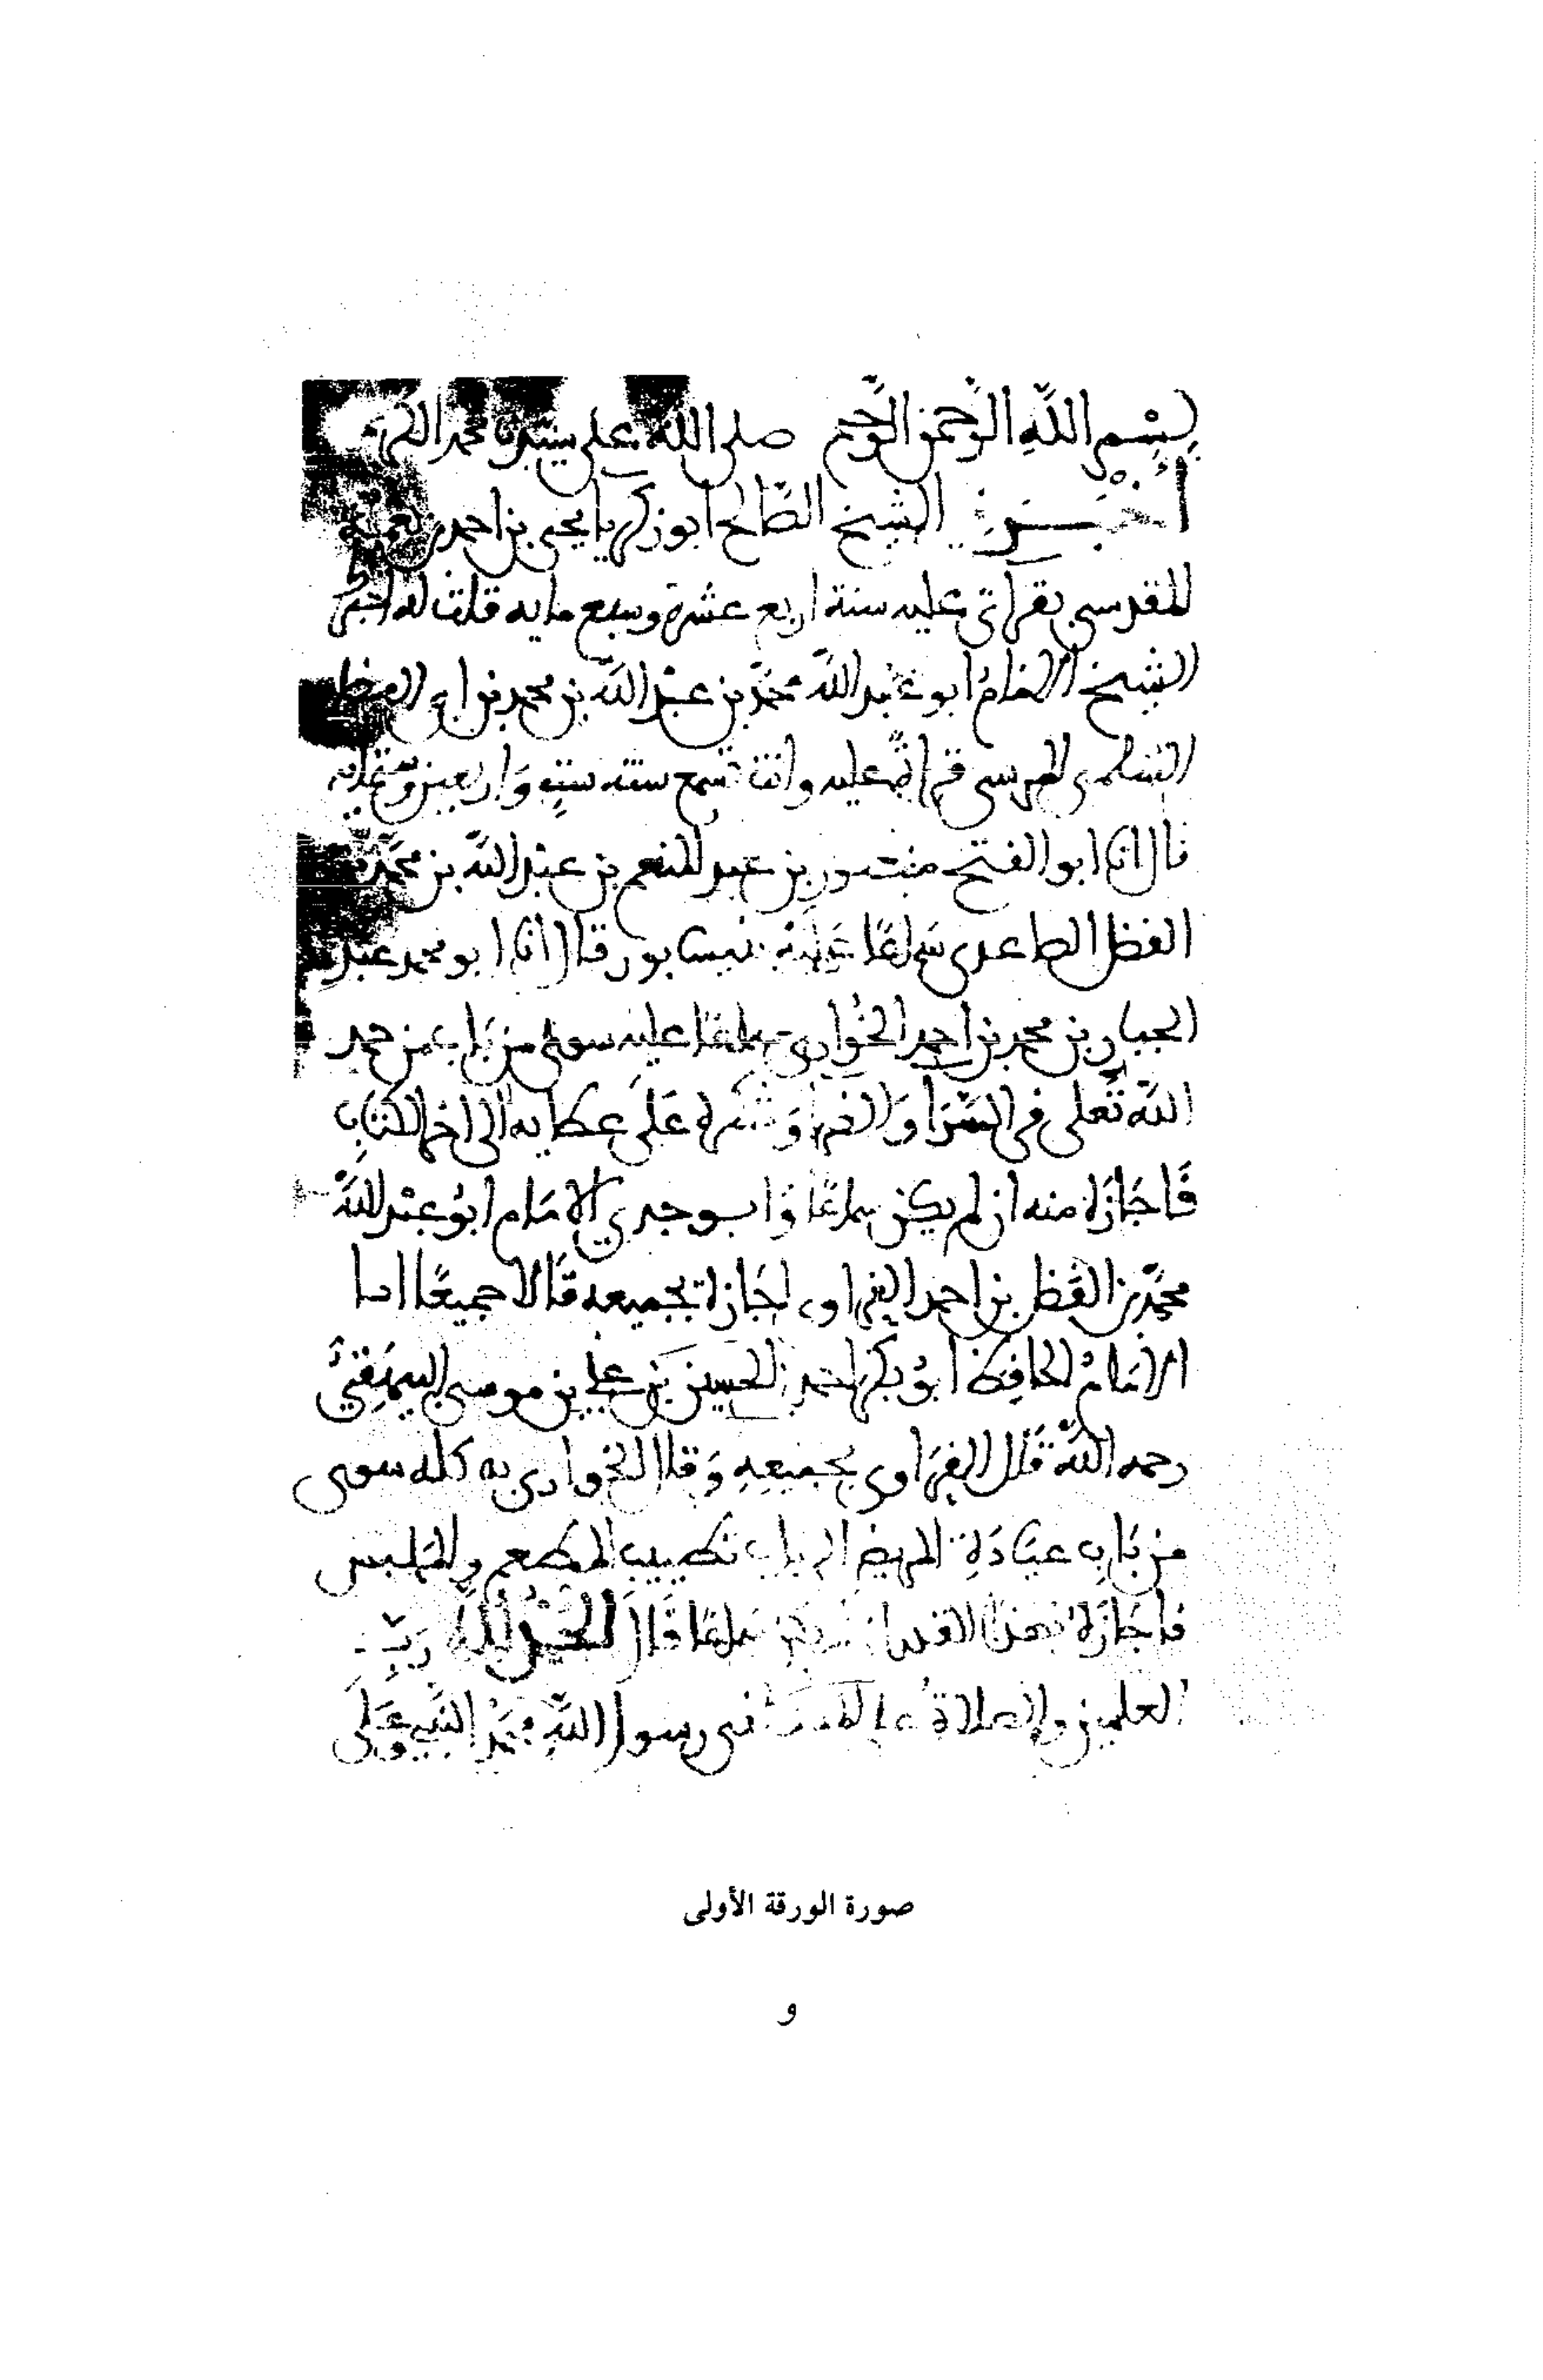 بِسْمِ اللَّهِ الرَّحمن الرَّحِيم صلى الله على سيدنا محمد الكريم
أَخْبَرَنَا الشيخ الصَّالح ابو زكريا يحيى بن احمد بن نعمة
المقدسي بقراتي عليه سنة اربع عشرة وسبع مايه قلت له اخبركم
الشيخ الامَامُ ابو عَبد اللَّه محمَّد بن عبْد اللَّه بن محمد بن ابي الفضل
السلمي المرسي قراةً عليه وانت تسمع سنه ست وَاربعين وستمايه
قال انا ابو الفتح منصور بن عبد المنعم بن عبْد اللَّه بن محمَّد بن
الفضل الصاعدي سَمَاعًا عَلَيْه بنيسابور قال انا ابو محمد عبد
الجبار بن محمد بن احمد الخُوَاري سماعًا عليه سوى من بَاب من حمد
اللَّه تعلى في السَّرَا وَالضرا وَشكره عَلَى عطايه الى اخر الكتَاب
فَاجَازَة منه ان لم يكن سماعًا وَابو جدي الامَام ابوُ عبْد اللَّه
محمَّد بن الفَضل بن احمد الفراوي اجَازة بجميعه قَالا جميعًا انا
الامَامُ الحَافِظ ابوُ بَكر احمد بن الحسين بن علي بن موسى البيهَقِيُّ
رحمه اللَّه قَالَ الفرَاوي بجميعِهِ وَقال الخواري به كله سوى
من بَابِ عيَادَةِ المريض الى باب تطييب المطعم والمَلبس
فاجَازَة لهذا القدر ان لم يكن سماعًا قَالَ الحَمْدُ لِلَّهِ رَبِّ
العلمين والصلاة على رسول اللَّهِ محمَّد النَّبي وَعَلَى
صورة الورقة الأولى
و